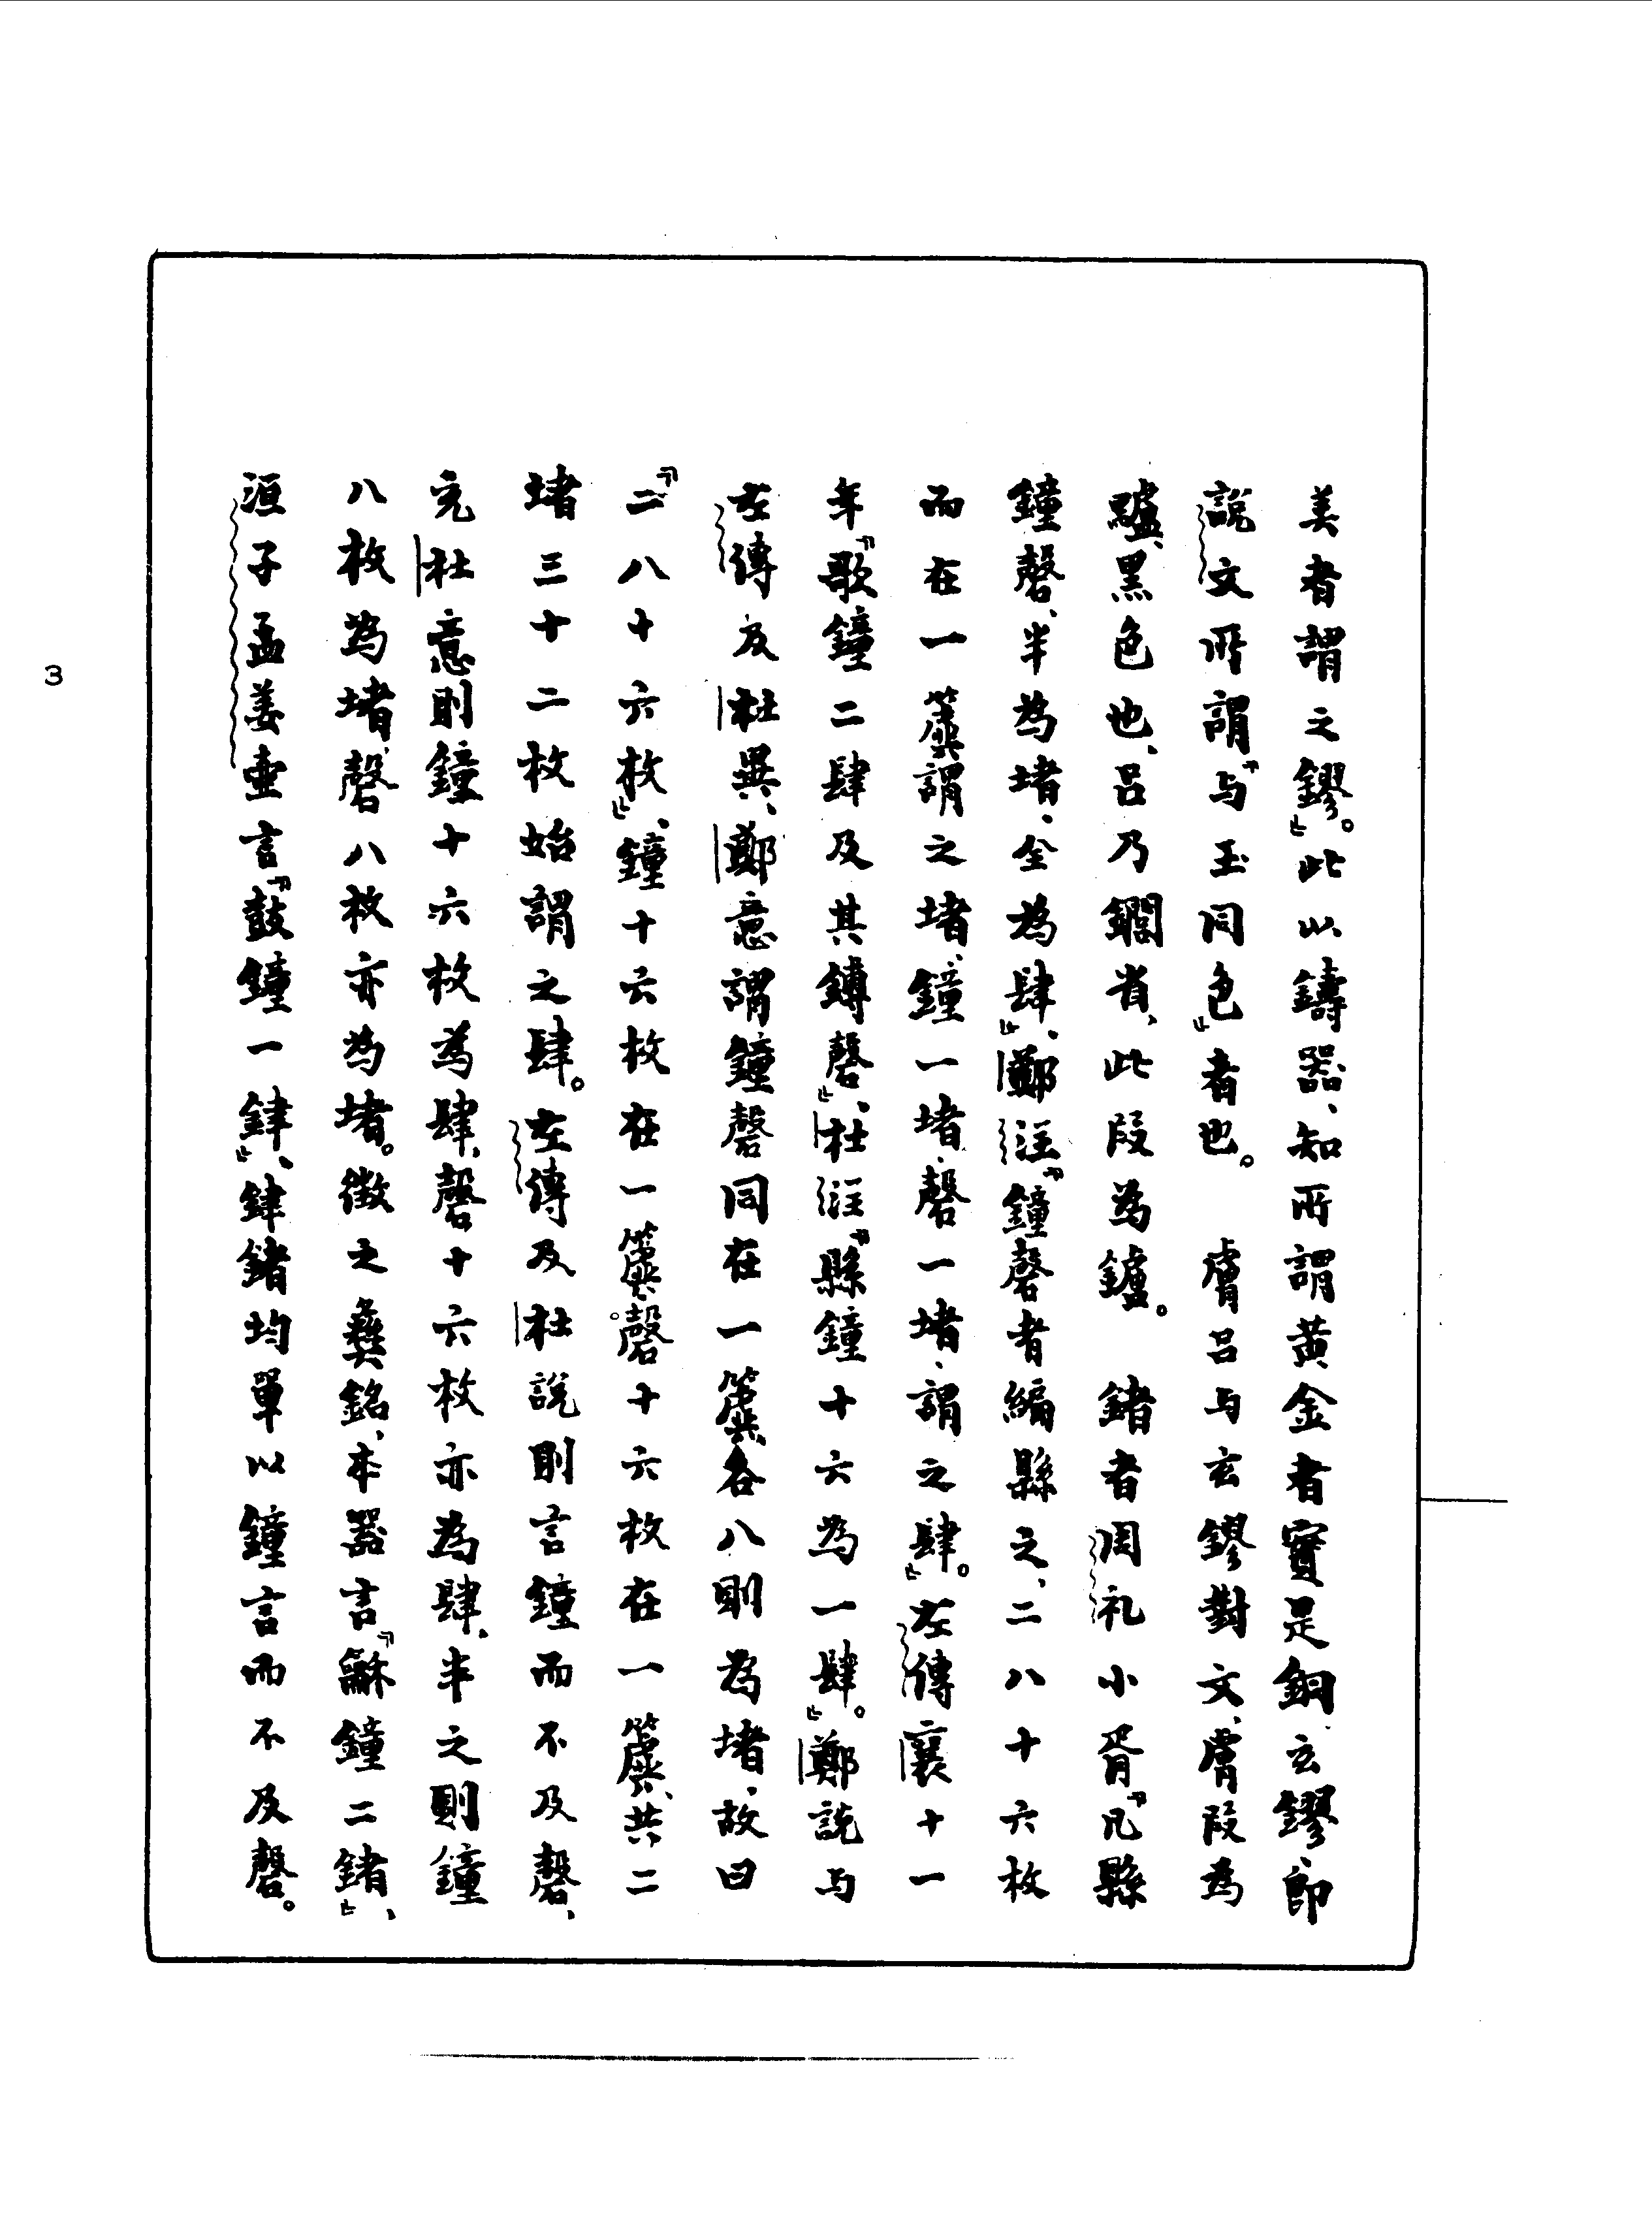 美者謂之鏐』。此以鑄器、知所謂黃金者實是銅。玄鏐、即
說文所謂『与玉同色』者也。 膚呂与玄鏐對文、膚叚為
驢、黑色也、呂乃鑭省、此叚為鑪。 鍺者周礼小胥『凡縣
鐘磬、半為堵、全為肆』、鄭注『鐘磬者編縣之、二八十六枚
而在一簴謂之堵、鐘一堵、磬一堵、謂之肆』。左傳襄十一
年『歌鐘二肆及其鎛磬』、杜注『縣鐘十六為一肆』。鄭說与
左傳及杜異、鄭意謂鐘磬同在一簴、各八則為堵、故曰
『二八十六枚』、鐘十六枚在一簴。磬十六枚在一簴、共二
堵三十二枚始謂之肆。左傳及杜說則言鐘而不及磬、
充杜意則鐘十六枚為肆、磬十六枚亦為肆、半之則鐘
八枚為堵、磬八枚亦為堵。徵之彝銘、本器言『龢鐘二鍺』、
洹子孟姜壷言『鼓鐘一銉』、銉鍺均單以鐘言而不及磬。
3